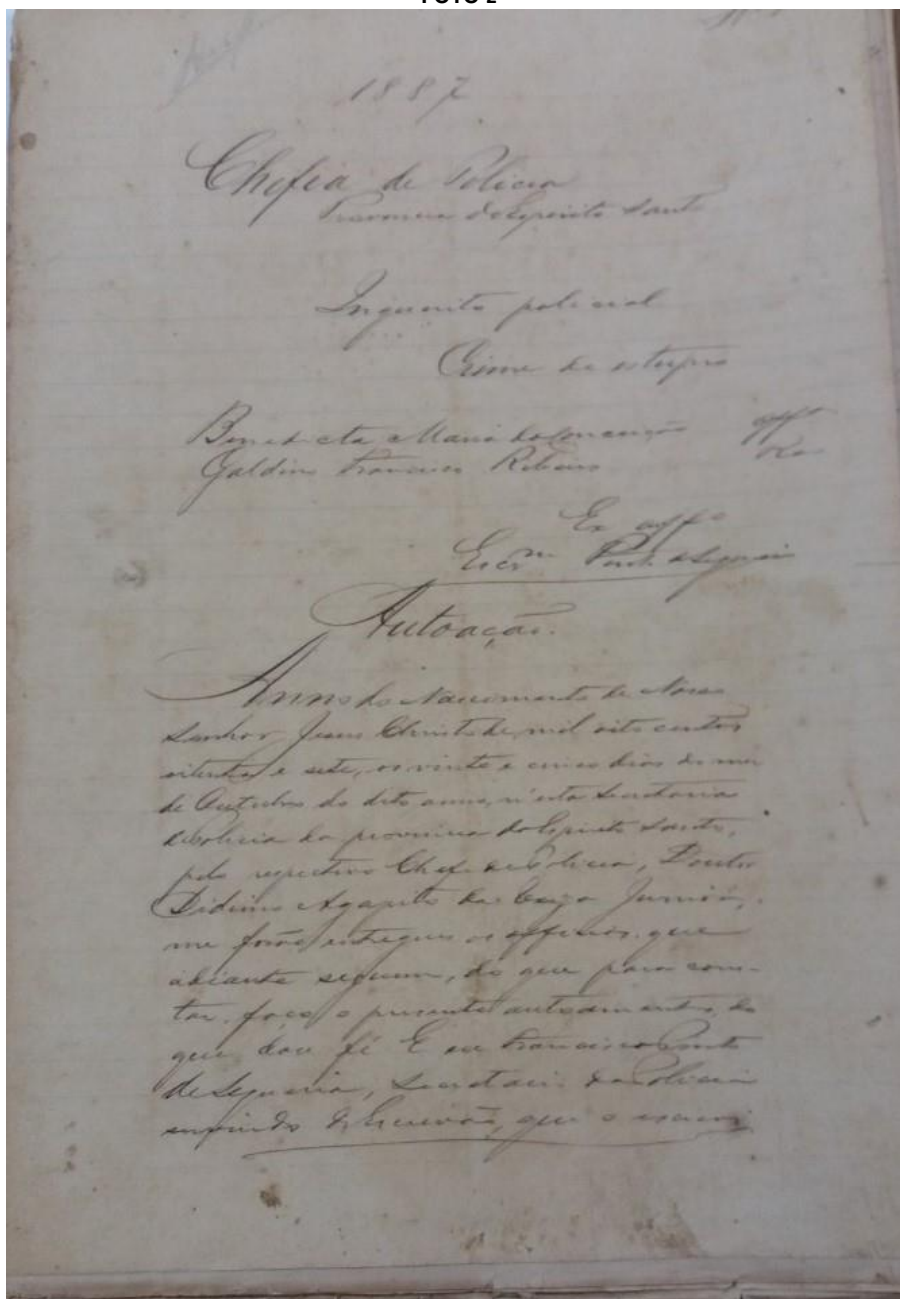 1887
Chefia de Policia
Provincia do Espirito Santo
Inquerito policial
Crime de estupro
Benedicta Maria da Conceição offª
Galdino Francisco Ribeiro Reo
Ex offº
Escrm
Autoação.
Anno do Nascimento de Nosso
Senhor Jesus Christo de mil oito centos
oitenta e sete, os vinte e cinco dias do mez
de Outubro do dito anno, n'esta Secretaria
de Policia da provincia do Espirito Santo,
pelo respectivo Chefe de Policia, Doutor
Didimo Agapito da Veiga Junior,
me forão entregues os officios que
adiante seguem, do que para cons-
tar faço o presente autoamento, do
que dou fé E eu Francisco
de Siqueira, Secretario da Policia
servindo de Escrivão, que o escrevi